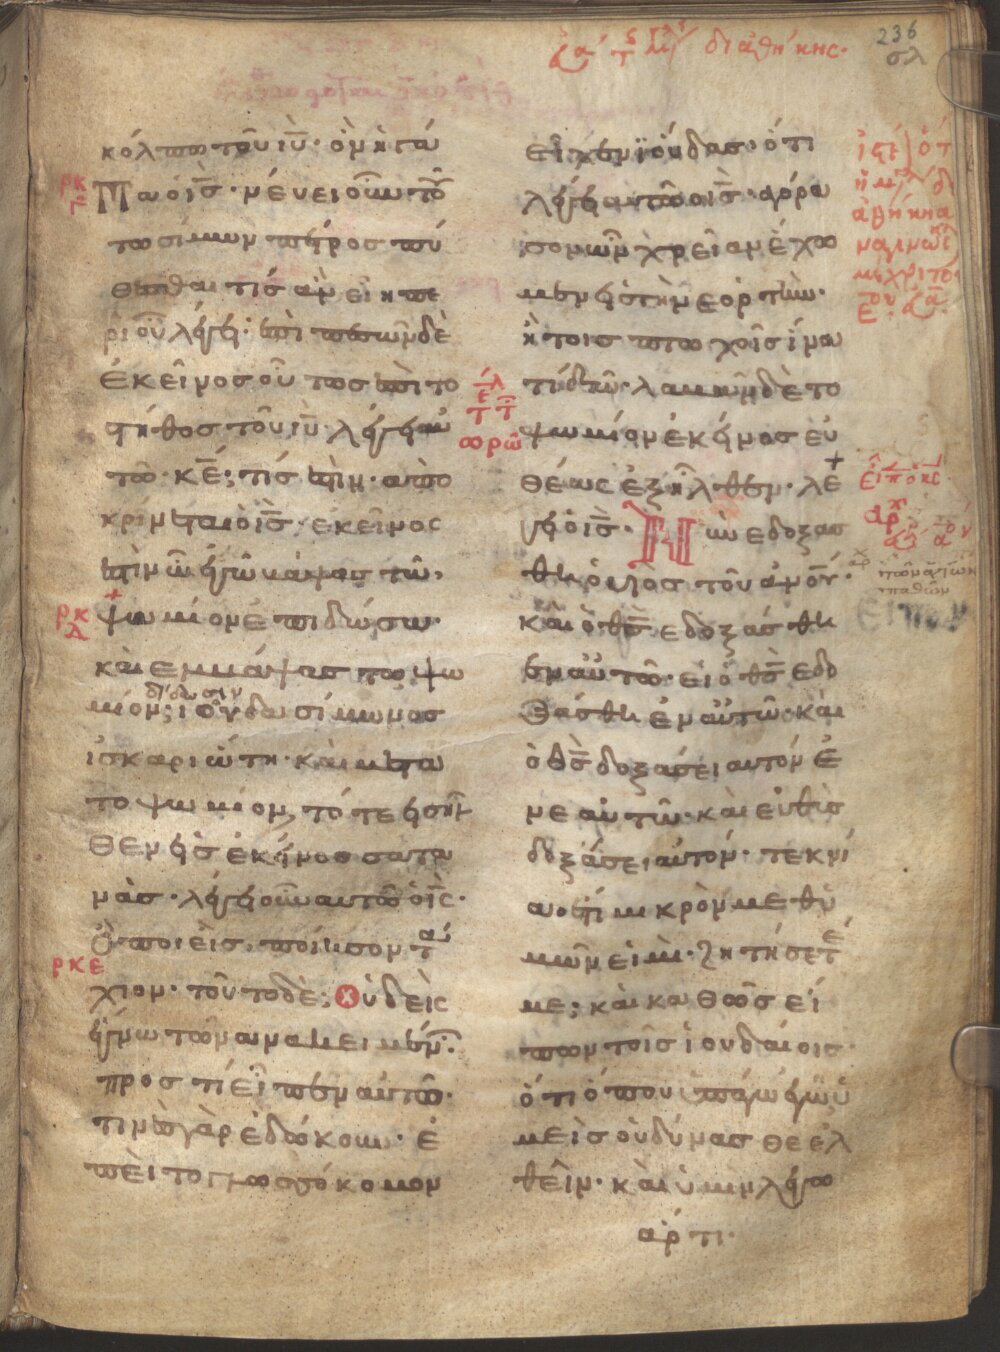 236
σλ
διαθήκης·
κόλπω τοῦ ιῦ· ὃν ἠγά
ρκγ
πα ὁ ις· νεύει οὖν τού
τω σίμων πέτρος πυ
θέσθαι τίς ἂν εἴη πε
ρὶ οὗ λέγει· ἐπιπεσὼν δὲ
ἐκεῖνος οὕτως ἐπὶ το
στῆθος τοῦ ιῦ· λέγει αὐ
τῶ· κε; τίς ἐστιν· ἀπο
κρίνεται ὁ ις· ἐκεῖνος
ἐστὶν ὧ ἐγὼ βάψας τὼ
ρκδ
ψωμίον ἐπιδώσω·
καὶ ἐμβάψας τὸ ψω
δίδωσιν
μίον; ἰούδα σίμωνος
ἰσκαριώτη· καὶ μετα
το ψωμίον, τότε εἰσῆλ
θεν εἰς ἐκεῖνον σατα
νάς· λέγει οὖν αὐτῶ ὁ ις·
ὃ ποιεῖς, ποίησον τά
ρκε
χιον· τοῦτο δὲ; Οὐδεὶς
ἔγνω τῶν ἀνακειμένων
πρὸς τί εἶπεν αὐτῶ·
τινὲς γὰρ ἐδόκουν· ἐ
πεὶ το γλωσσόκομον
εἶχεν ἰούδας· ὅτι
λέγει αὐτῶ ὁ ις· ἀγόρα
σον ὧν χρείαν ἔχο
μεν εἰς τὴν ἑορτήν·
ἢ τοῖς πτωχοῖς ἵνα
τί δῶ· λαβὼν δὲ το
ψωμίον ἐκεῖνος εὐ
θέως ἐξῆλθεν· λέ
γει ὁ ις· Νῦν ἐδοξάσ
θη ὁ υἱος τοῦ ανου·
καὶ ὁ θς ἐδοξάσθη
ἐν αὐτῶ· εἰ ὁ θς ἐδο
ξάσθη ἐν αὐτῶ· καὶ
ὁ θς δοξάσει αὐτόν ἐ
ν ἑαυτῶ· καὶ εὐθὺς
δοξάσει αὐτόν· τεκνί
α ἔτι μικρὸν μεθ ὑ
μῶν εἰμι· ζητήσετέ
με; καὶ καθὼς εἶ
πον τοῖς ἰουδαίοις·
ὅτι ὅπου ὑπάγω ἐγὼ ὑ
μεῖς οὐ δύνασθε ἐλ
θεῖν· καὶ ὑμῖν λέγω
ἄρτι·